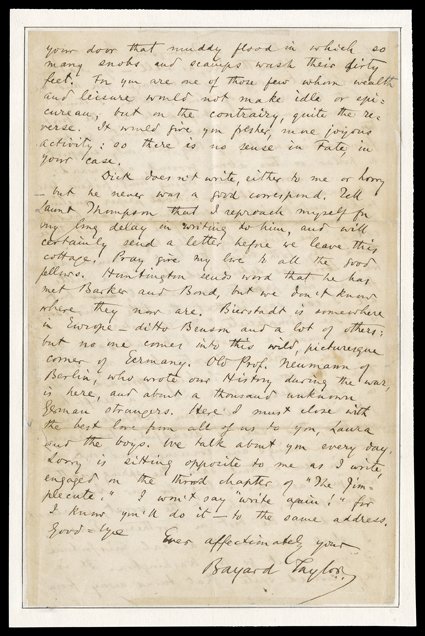 your door that muddy flood in which so
many snobs and scamps wash their dirty
feet. For you are one of those few whom wealth
and leisure would not make idle or epi=
curean, but on the contrairy, quite the re=
verse. It would give you fresher, more joyous
activity: so there is no sense in Fate, in
your case.
Dick doesn't write, either to me or Lorry
— but he never was a good correspond. Tell
Launt Thompson that I reproach myself for
my long delay in writing to him, and will
certainly send a letter before we leave this
cottage. Pray give my love to all the good
fellows. Huntington sends word that he has
met Barker and Bond, but we don't know
where they now are. Bierstadt is somewhere
in Europe — ditto Benson and a lot of others;
but no one comes into this wild, picturesque
corner of Germany. Old Prof. Neumann of
Berlin, who wrote our History during the war,
is here, and about a thousand unknown
German strangers. Here I must close with
the best love from all of us to you, Laura
and the boys. We talk about you every day.
Lorry is sitting opposite to me as I write,
engaged on the third chapter of "The Gim=
plecute." I won't say "write again!" for
I know you'll do it — to the same address.
Good=bye Ever affectionately your
Bayard Taylor.